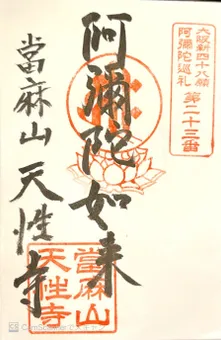 大阪新四十八願
阿彌陀巡礼
第二十三番
阿彌陀如来
當麻山 天性寺
當麻山
天性寺